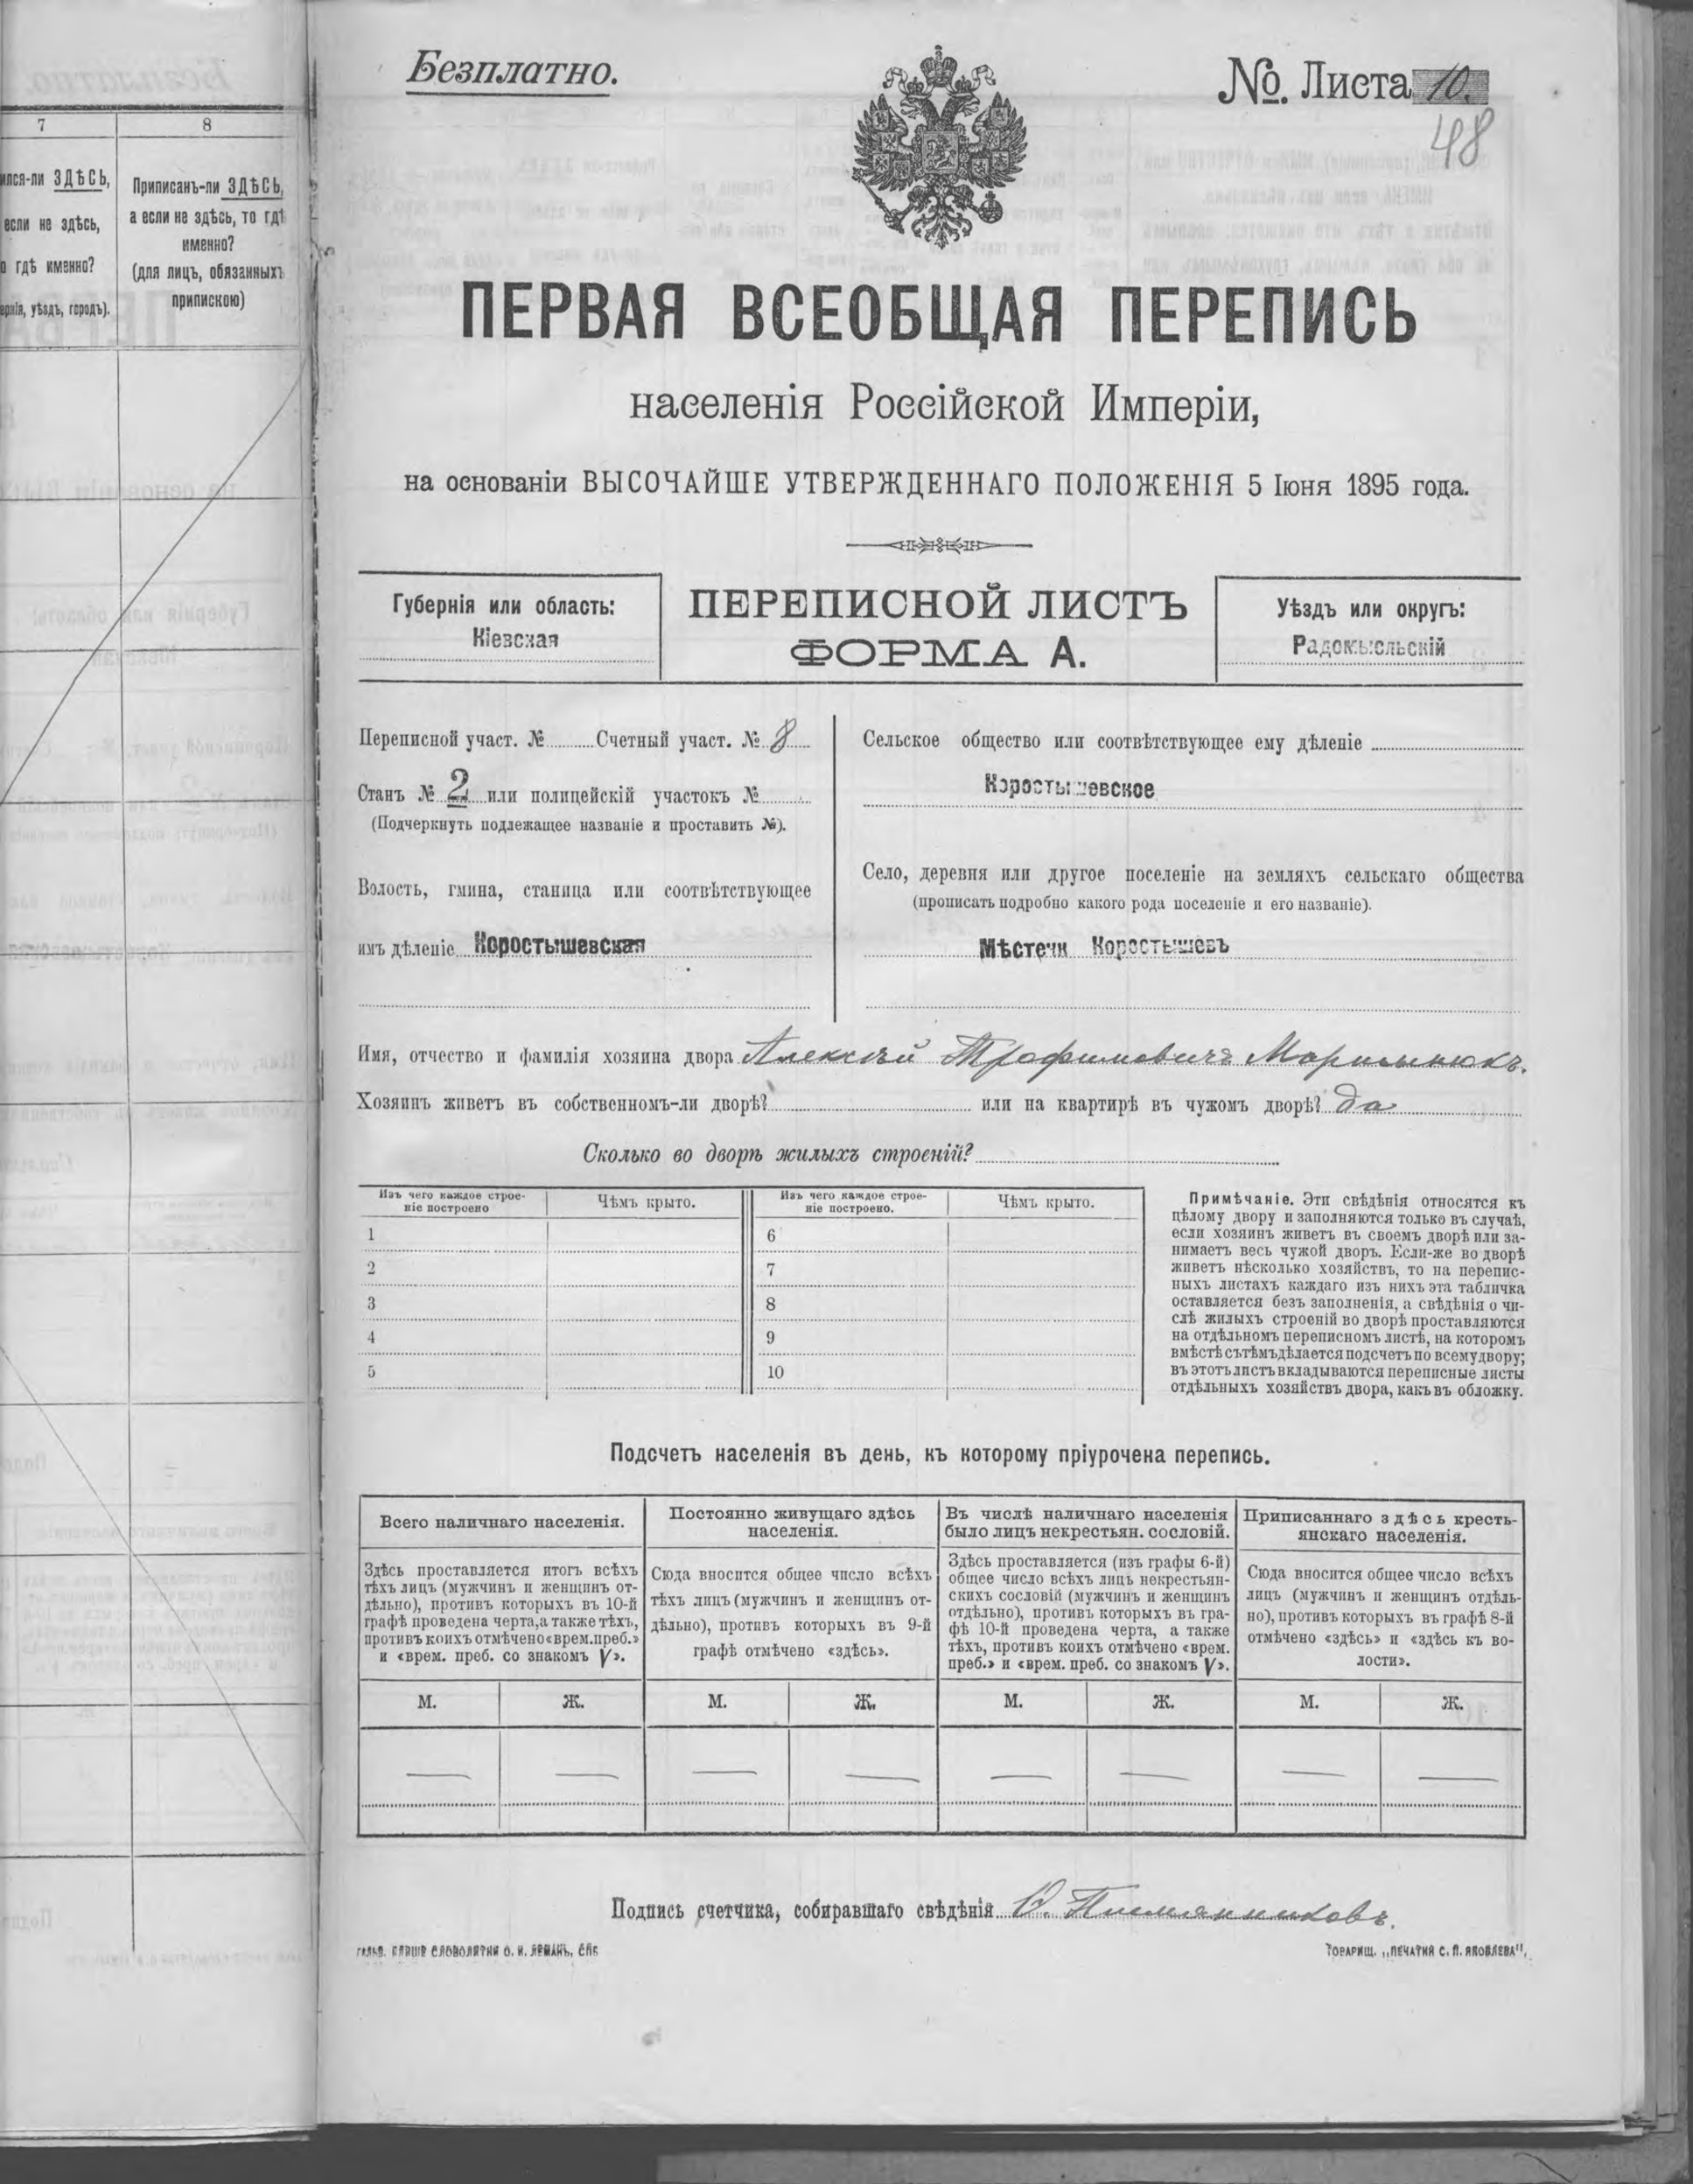 7
8
ился-ли ЗДѢСЬ,
если не здѣсь,
о гдѣ именно?
ернія, уѣздъ, городъ).
Приписанъ-ли ЗДѢСЬ,
а если не здѣсь, то гдѣ
именно?
(для лицъ, обязанныхъ
припискою)
Безплатно.
№. Листа 10.
48
ПЕРВАЯ ВСЕОБЩАЯ ПЕРЕПИСЬ
населенія Россійской Имперіи,
на основаніи ВЫСОЧАЙШЕ УТВЕРЖДЕННАГО ПОЛОЖЕНІЯ 5 Іюня 1895 года.
Губернія или область:
Кіевская
ПЕРЕПИСНОЙ ЛИСТЪ
ФОРМА А.
Уѣздъ или округъ:
Радомысльскій
Переписной участ. № Счетный участ. № 8
Станъ № 2 или полицейскій участокъ №
(Подчеркнуть подлежащее названіе и проставить №).
Волость, гмина, станица или соотвѣтствующее
имъ дѣленіе Коростышевская
Сельское общество или соотвѣтствующее ему дѣленіе
Коростышевское
Село, деревня или другое поселеніе на земляхъ сельскаго общества
(прописать подробно какого рода поселеніе и его названіе).
Мѣстечк Коростышевъ
Имя, отчество и фамилія хозяина двора Алексѣй Трофимовичъ
Хозяинъ живетъ въ собственномъ-ли дворѣ? или на квартирѣ въ чужомъ дворѣ? да
Сколько во дворѣ жилыхъ строеній?
Изъ чего каждое строе-
ніе построено
Чѣмъ крыто.
Изъ чего каждое строе-
ніе построено.
Чѣмъ крыто.
1
2
3
4
5
6
7
8
9
10
Примѣчаніе. Эти свѣдѣнія относятся къ
цѣлому двору и заполняются только въ случаѣ,
если хозяинъ живетъ въ своемъ дворѣ или за-
нимаетъ весь чужой дворъ. Если-же во дворѣ
живетъ нѣсколько хозяйствъ, то на перепис-
ныхъ листахъ каждаго изъ нихъ эта табличка
оставляется безъ заполненія, а свѣдѣнія о чи-
слѣ жилыхъ строеній во дворѣ проставляются
на отдѣльномъ переписномъ листѣ, на которомъ
вмѣстѣ съ тѣмъ дѣлается подсчетъ по всему двору;
въ этотъ листъ вкладываются переписные листы
отдѣльныхъ хозяйствъ двора, какъ въ обложку.
Подсчетъ населенія въ день, къ которому пріурочена перепись.
Всего наличнаго населенія.
Здѣсь проставляется итогъ всѣхъ
тѣхъ лицъ (мужчинъ и женщинъ от-
дѣльно), противъ которыхъ въ 10-й
графѣ проведена черта, а также тѣхъ,
противъ коихъ отмѣчено «врем. преб.»
и «врем. преб. со знакомъ V».
Постоянно живущаго здѣсь
населенія.
Сюда вносится общее число всѣхъ
тѣхъ лицъ (мужчинъ и женщинъ от-
дѣльно), противъ которыхъ въ 9-й
графѣ отмѣчено «здѣсь».
Въ числѣ наличнаго населенія
было лицъ некрестьян. сословій.
Здѣсь проставляется (изъ графы 6-й)
общее число всѣхъ лицъ некрестьян-
скихъ сословій (мужчинъ и женщинъ
отдѣльно), противъ которыхъ въ гра-
фѣ 10-й проведена черта, а также
тѣхъ, противъ коихъ отмѣчено «врем.
преб.» и «врем. преб. со знакомъ V».
Приписаннаго здѣсь кресть-
янскаго населенія.
Сюда вносится общее число всѣхъ
лицъ (мужчинъ и женщинъ отдѣль-
но), противъ которыхъ въ графѣ 8-й
отмѣчено «здѣсь» и «здѣсь къ во-
лости».
М. Ж. М. Ж. М. Ж. М. Ж.
— — — — — — — —
Подпись счетчика, собиравшаго свѣдѣнія
Товарищ. „Печатня С. П. Яковлева",